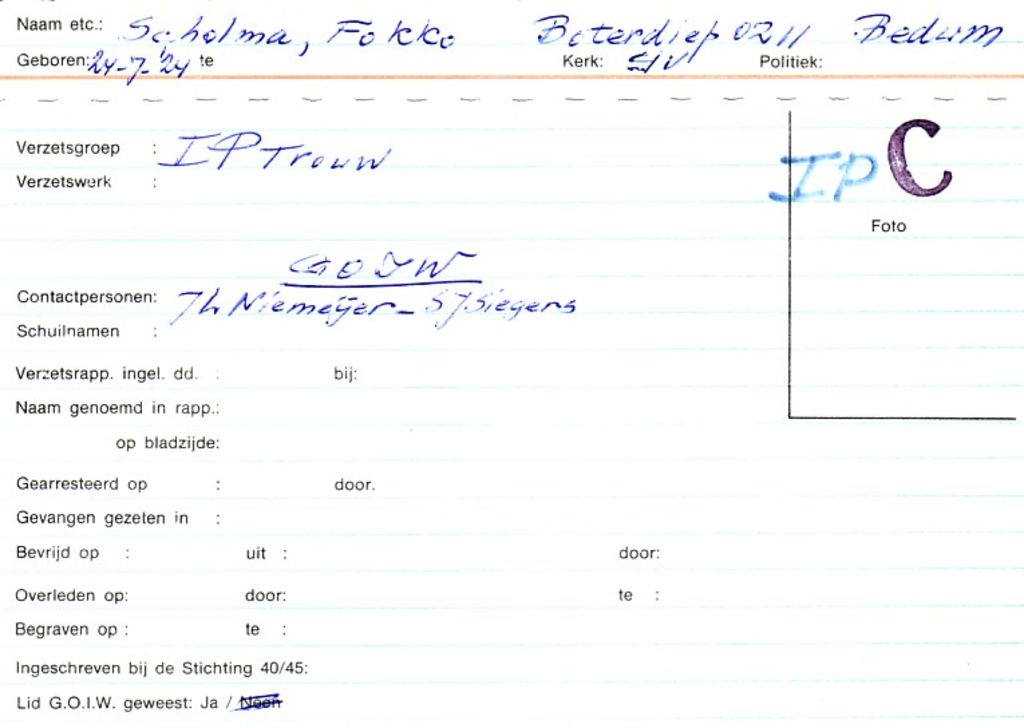 Naam etc.: Scholma, Fokko Boterdiep 0211 Bedum
Geboren: 24-7-'24 te Kerk: Politiek:
Verzetsgroep : IP Trouw
IP C
Verzetswerk :
Foto
GOIW
Contactpersonen: Th Niemeijer - SJ Siegers
Schuilnamen :
Verzetsrapp. ingel. dd. : bij:
Naam genoemd in rapp.:
op bladzijde:
Gearresteerd op : door.
Gevangen gezeten in :
Bevrijd op : uit : door:
Overleden op: door: te :
Begraven op : te :
Ingeschreven bij de Stichting 40/45:
Lid G.O.I.W. geweest: Ja / Neen